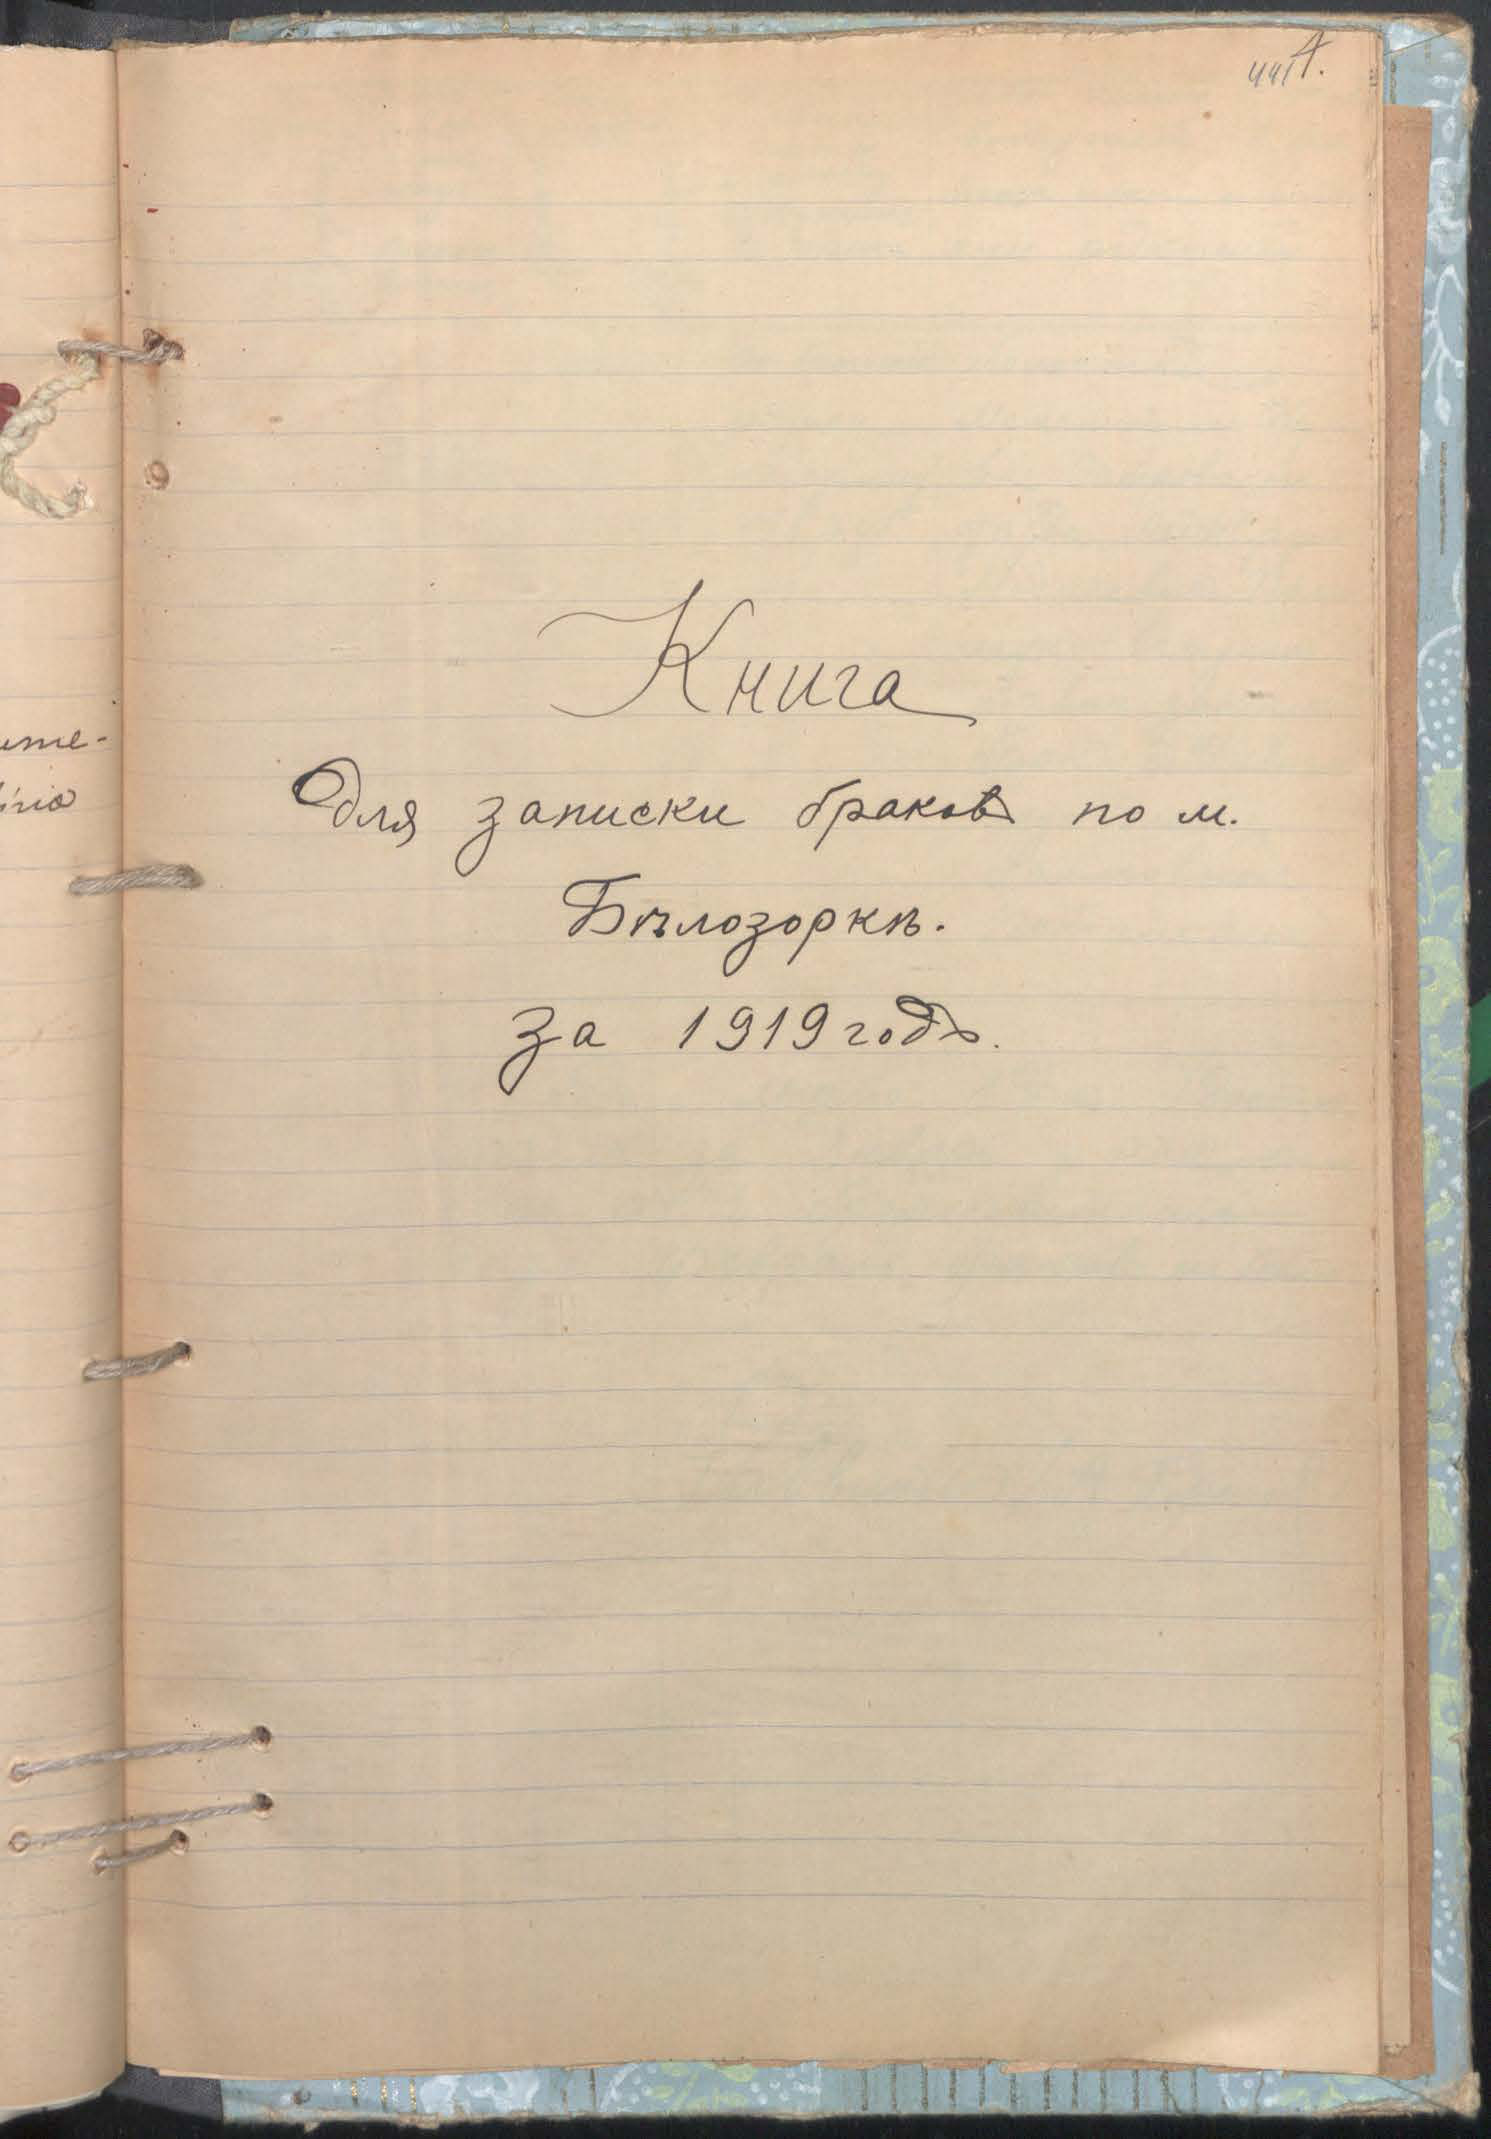 Книга
для записки браковъ по м.
Бѣлозоркѣ.
за 1919 годъ.